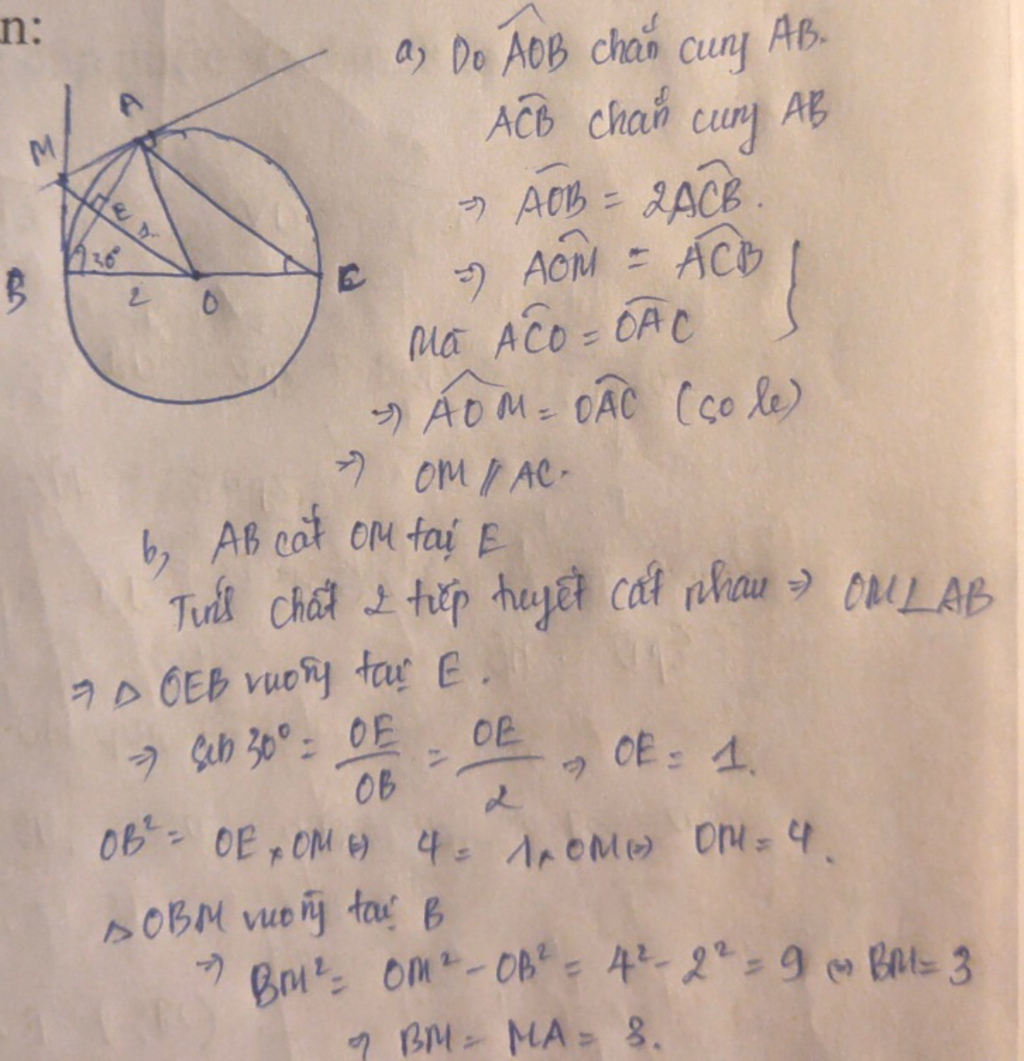 n:
a) Do AOB chắn cung AB.
ACB chắn cung AB
=> AOB = 2ACB.
=> AOM = ACB
Mà ACO = OAC
=> AOM = OAC (so le)
=> OM // AC.
b, AB cắt OM tại E
Tính chất 2 tiếp tuyết cắt nhau => OM ⊥ AB
=> Δ OEB vuông tại E.
=> sin 30° = OE/OB = OE/2 => OE = 1.
OB² = OE × OM <=> 4 = 1 × OM <=> OM = 4.
Δ OBM vuông tại B
=> BM² = OM² - OB² = 4² - 2² = 9 <=> BM = 3
=> BM = MA = 3.
A
M
E
1
30°
B
2
O
C